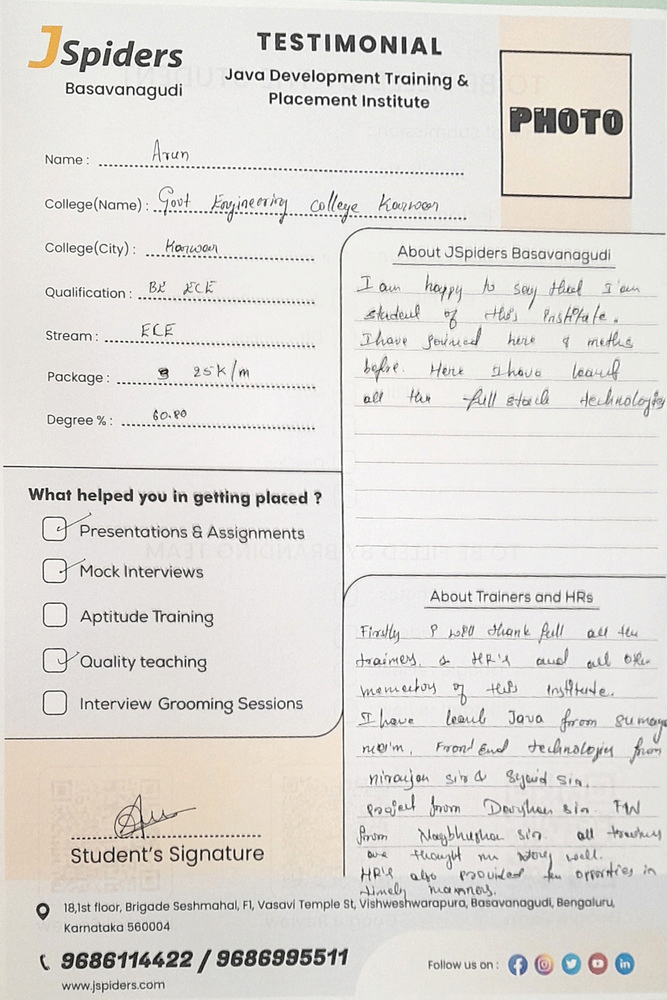 JSpiders
Basavanagudi
TESTIMONIAL
Java Development Training &
Placement Institute
PHOTO
Name : Arun
College(Name) : Govt Engineering College Karwar
College(City) : Karwar
Qualification : BE ECE
Stream : ECE
Package : 25K/m
Degree % : 60.80
About JSpiders Basavanagudi
I am happy to say that I am
student of this institute.
I have joined here 8 moths
before. Here I have learnt
all the full stack technologies
What helped you in getting placed ?
Presentations & Assignments
Mock Interviews
Aptitude Training
Quality teaching
Interview Grooming Sessions
About Trainers and HRs
Firstly I will thank full all the
trainers, & HR's and all other
of this institute.
I have learnt Java from sumaya
ma'm, Front End technologies from
niranjan sir & Syed sir,
project from Darshan sir. FW
from Nagbhushan sir. all teachers
are thought me very well.
HR's also provided the in
timely manners.
Student's Signature
18,1st floor, Brigade Seshmahal, F1, Vasavi Temple St, Vishweshwarapura, Basavanagudi, Bengaluru,
Karnataka 560004
9686114422 / 9686995511
www.jspiders.com
Follow us on :